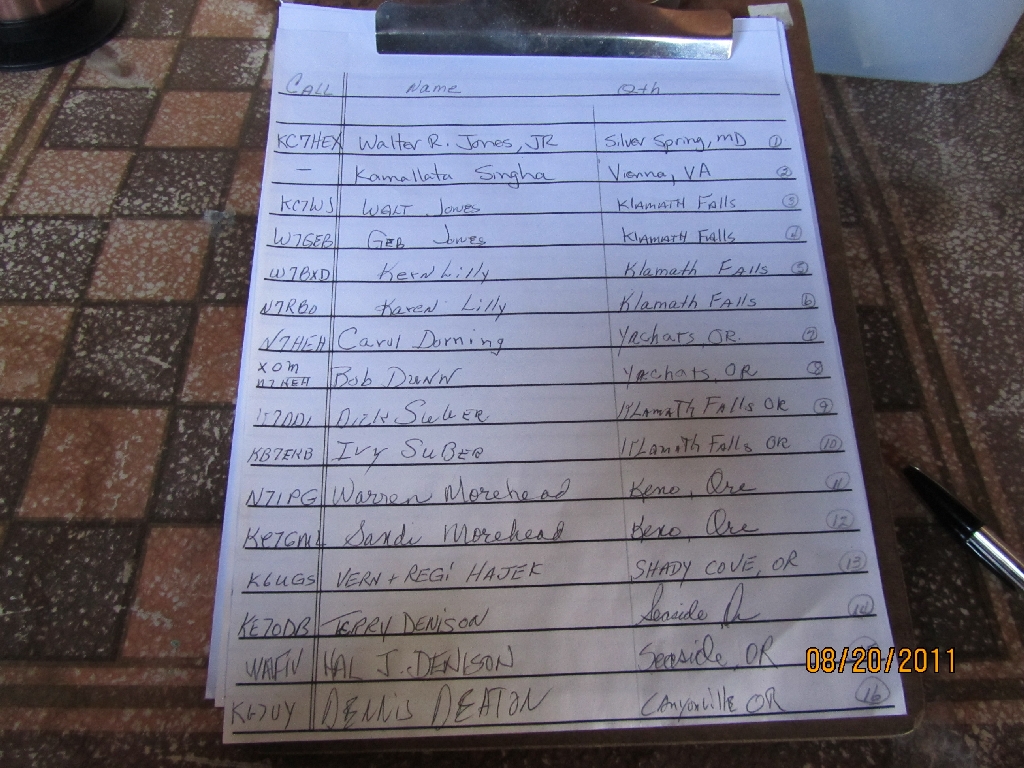 Call Name Qth
KC7HEX Walter R. Jones, JR Silver Spring, MD 1
— Kamallata Singha Vienna, VA 2
KC7WJ WALT Jones Klamath Falls 3
W7GEB GEB Jones Klamath Falls 4
W7BXD Kern Lilly Klamath Falls 5
N7RBO Karen Lilly Klamath Falls 6
N7HEH Carol Dorning Yachats, OR. 7
XOM N7HEH Bob Dunn Yachats, OR 8
Dick SuBER Klamath Falls OR 9
KB7EKB Ivy SuBER Klamath Falls OR 10
N7IPG Warren Morehead Keno, Ore 11
Sandi Morehead Keno, Ore 12
K6UGS VERN + REGI HAJEK SHADY COVE, OR 13
KE7ODB TERRY DENISON Seaside Or 14
HAL J. DENISON Seaside, OR
KG7UY DENNIS DEATON Canyonville OR 16
08/20/2011